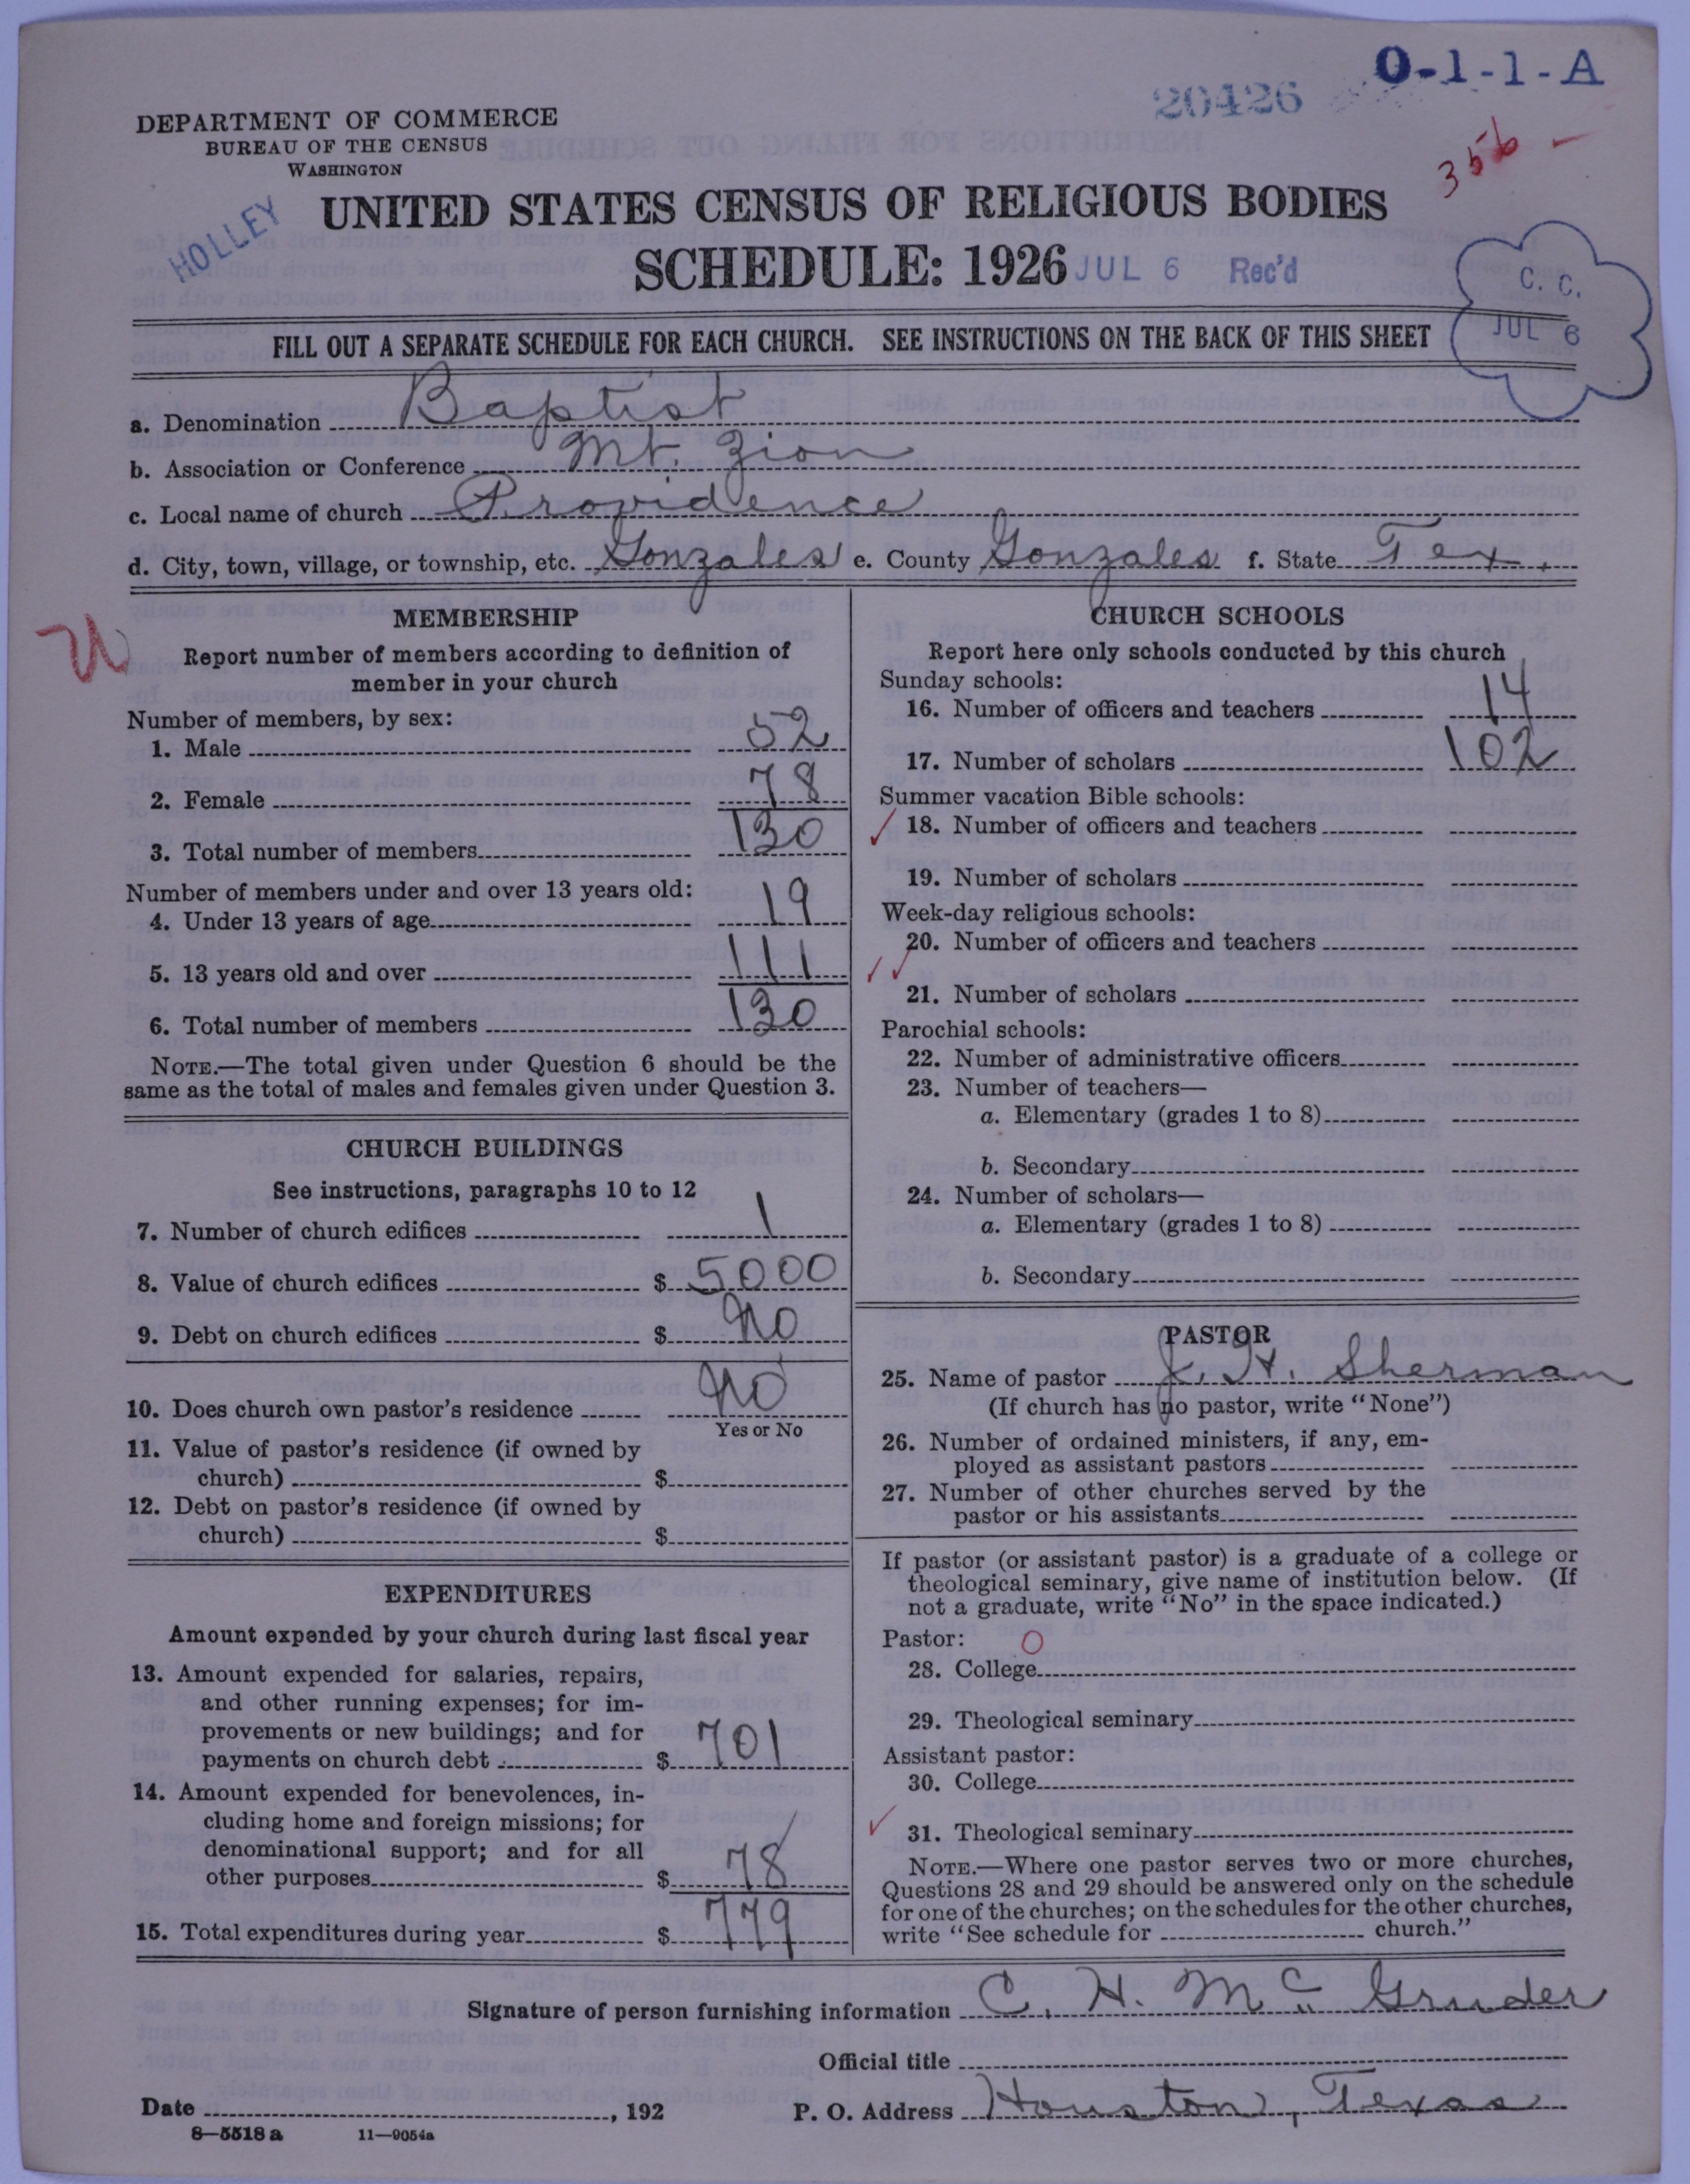 O-1-1-A
20426
356 -
DEPARTMENT OF COMMERCE
BUREAU OF THE CENSUS
WASHINGTON
HOLLEY
UNITED STATES CENSUS OF RELIGIOUS BODIES
SCHEDULE: 1926 JUL 6 Rec'd
C. C.
JUL 6
FILL OUT A SEPARATE SCHEDULE FOR EACH CHURCH. SEE INSTRUCTIONS ON THE BACK OF THIS SHEET
a. Denomination Baptist
b. Association or Conference Mt. Zion
c. Local name of church Providence
d. City, town, village, or township, etc. Gonzales e. County Gonzales f. State Tex.
MEMBERSHIP
Report number of members according to definition of
member in your church
Number of members, by sex:
1. Male 52
2. Female 78
3. Total number of members 130
Number of members under and over 13 years old:
4. Under 13 years of age 19
5. 13 years old and over 111
6. Total number of members 130
NOTE.—The total given under Question 6 should be the
same as the total of males and females given under Question 3.
CHURCH BUILDINGS
See instructions, paragraphs 10 to 12
7. Number of church edifices 1
8. Value of church edifices $ 5000
9. Debt on church edifices $ No
10. Does church own pastor's residence No
Yes or No
11. Value of pastor's residence (if owned by
church) $
12. Debt on pastor's residence (if owned by
church) $
EXPENDITURES
Amount expended by your church during last fiscal year
13. Amount expended for salaries, repairs,
and other running expenses; for im-
provements or new buildings; and for
payments on church debt $ 701
14. Amount expended for benevolences, in-
cluding home and foreign missions; for
denominational support; and for all
other purposes $ 78
15. Total expenditures during year $ 779
CHURCH SCHOOLS
Report here only schools conducted by this church
Sunday schools:
16. Number of officers and teachers 14
17. Number of scholars 102
Summer vacation Bible schools:
18. Number of officers and teachers
19. Number of scholars
Week-day religious schools:
20. Number of officers and teachers
21. Number of scholars
Parochial schools:
22. Number of administrative officers
23. Number of teachers—
a. Elementary (grades 1 to 8)
b. Secondary
24. Number of scholars—
a. Elementary (grades 1 to 8)
b. Secondary
PASTOR
25. Name of pastor J. H. Sherman
(If church has no pastor, write "None")
26. Number of ordained ministers, if any, em-
ployed as assistant pastors
27. Number of other churches served by the
pastor or his assistants
If pastor (or assistant pastor) is a graduate of a college or
theological seminary, give name of institution below. (If
not a graduate, write "No" in the space indicated.)
Pastor: O
28. College
29. Theological seminary
Assistant pastor:
30. College
31. Theological seminary
NOTE.—Where one pastor serves two or more churches,
Questions 28 and 29 should be answered only on the schedule
for one of the churches; on the schedules for the other churches,
write "See schedule for church."
Signature of person furnishing information C. H. McGruder
Official title
Date , 192 P. O. Address Houston, Texas
8—5518 a 11—9054a